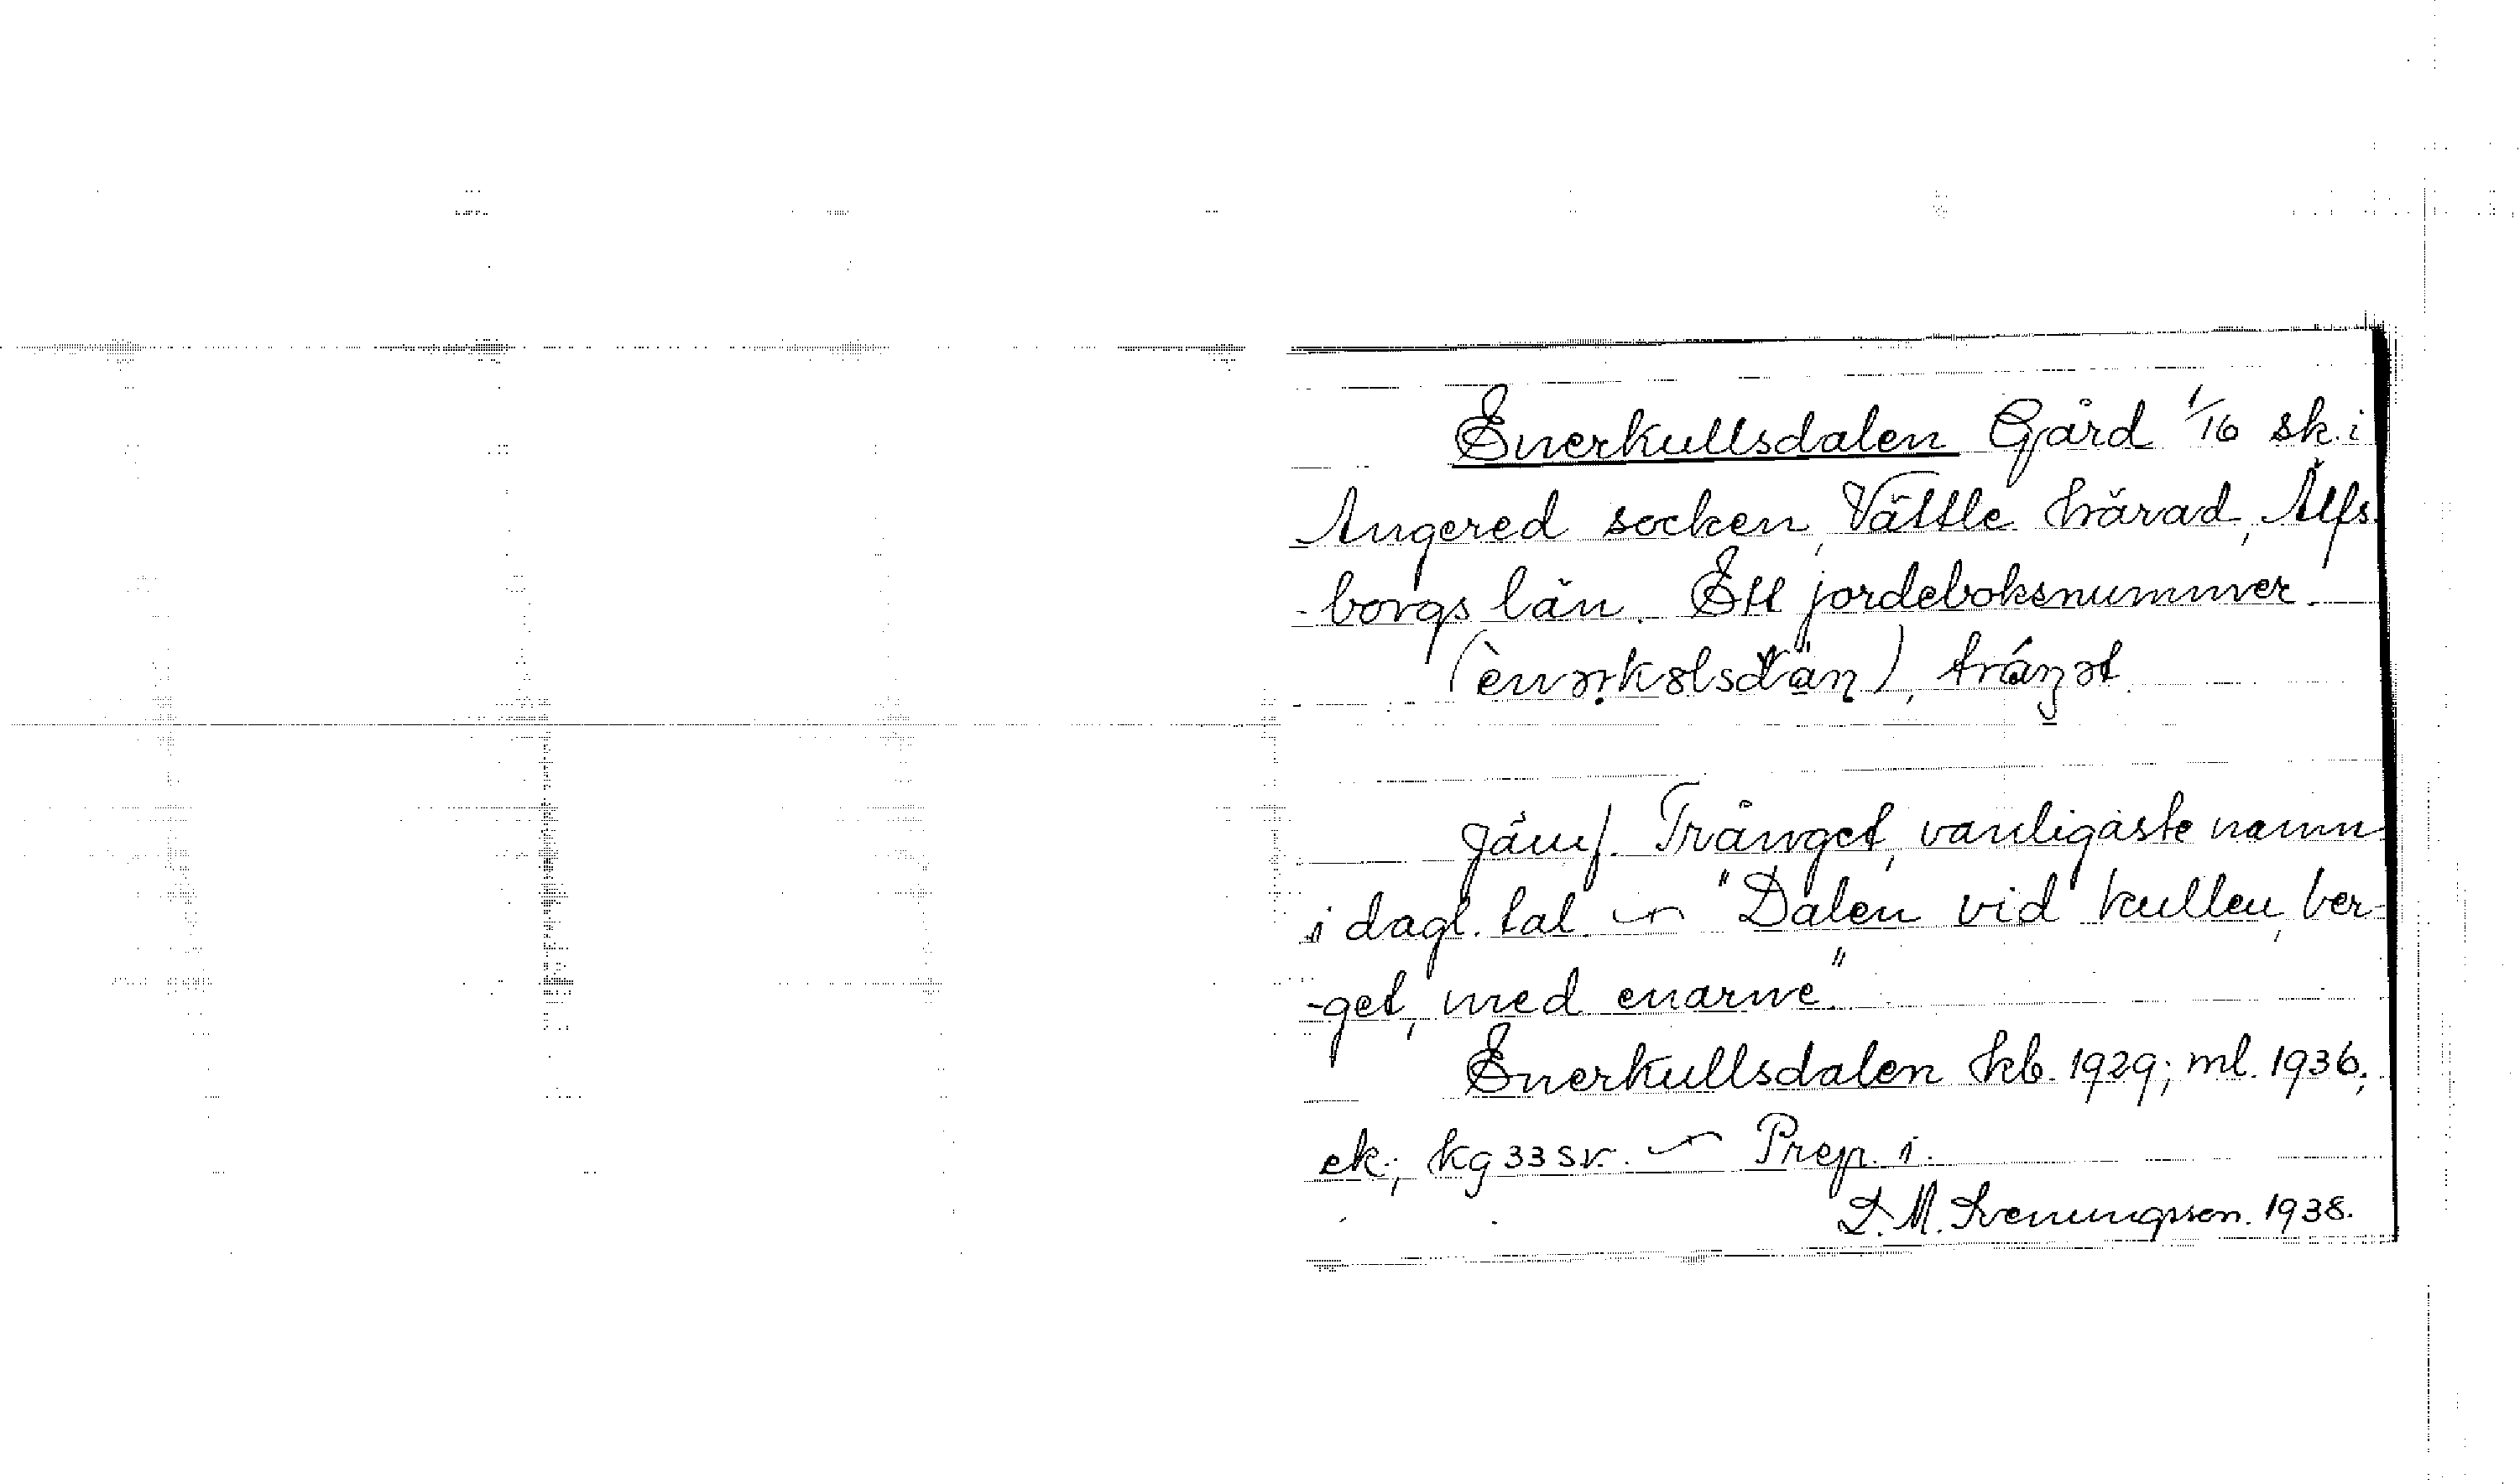 Enerkullsdalen Gård 1/16 sk. i
Angered socken, Vättle härad, Älfs-
-borgs län. Ett jordeboksnummer.
tráŋət
Jämf. Trånget, vanligaste namn
i dagl. tal. ~ "Dalen vid kullen, ber-
-get, med enarne."
Enerkullsdalen kb. 1929; ml. 1936;
ek.; kg 33 sv. ~ Prep. i.
D. M. Svenungsson. 1938.